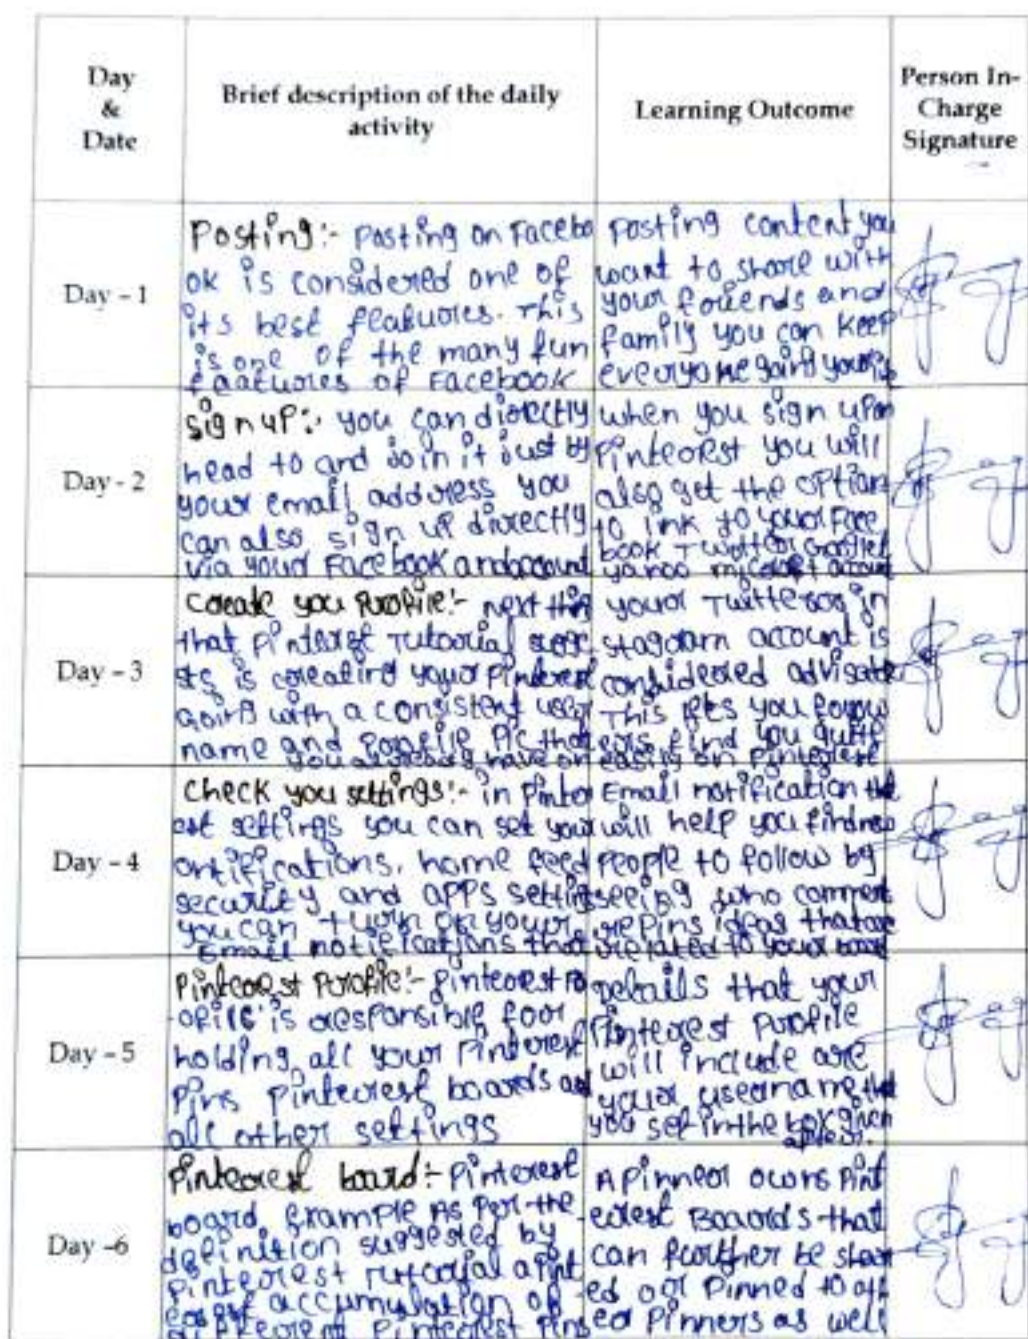 Day
&
Date
Brief description of the daily
activity
Learning Outcome
Person In-
Charge
Signature
Day - 1
Posting :- Posting on Facebo
ok is considered one of
its best features. This
is one of the many fun
features of Facebook
Posting content you
want to share with
your friends and
family you can keep
everyone
Day - 2
Sign up :- you can directly
head to and join it just by
your email address you
can also sign up directly
via your Facebook and account
when you sign up on
Pinterest you will
also get the option
to link to your Face
book Twitter
yahoo microsoft account
Day - 3
Create you Profile :- next thing
that Pinterest Tutorial sugge
sts is creating your Pinterest
Going with a consistent user
name and Profile Pic that
you already have on
your Twitter or in
stagram account is
considered advisable
This lets you follow
ers find you quite
easily on Pinterest
Day - 4
Check you settings :- in Pinter
est settings you can set your
notifications, home feed
security and apps setting
you can turn on your
Email notifications that
Email notification that
will help you find new
people to follow by
seeing who comment
repins ideas that are
related to your board
Day - 5
Pinterest Profile :- Pinterest Pr
ofile is responsible for
holding all your Pinterest
Pins Pinterest boards and
all other settings
Details that your
Pinterest Profile
will include are
your username that
you set in the box given
Day -6
Pinterest board :- Pinterest
board Example As Per the
definition suggested by
Pinterest Tutorial a Pint
erest accumulation of
different Pinterest Pins
A Pinner owns Pint
erest Boards that
can further be shar
ed or Pinned to oth
er Pinners as well